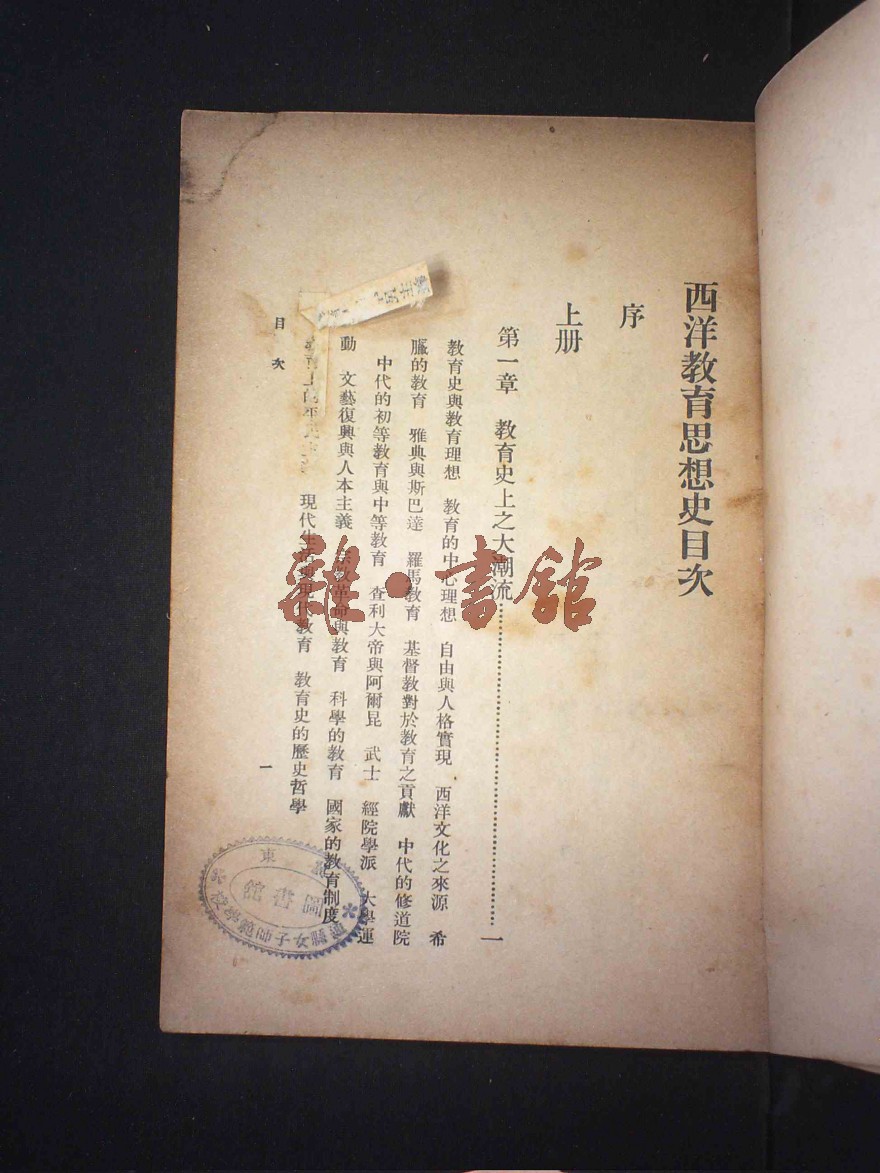 西洋教育思想史目次
序
上册
第一章 教育史上之大潮流……一
教育史與教育理想 教育的中心理想 自由與人格實現 西洋文化之來源 希
臘的教育 雅典與斯巴達 羅馬教育 基督教對於教育之貢獻 中代的修道院
中代的初等教育與中等教育 查利大帝與阿爾昆 武士 經院學派 大學運
動 文藝復興與人本主義 宗教革命與教育 科學的教育 國家的教育制度
現代生活與現代教育 教育史的歷史哲學
目次
一
雜·書館
圖書館
縣女子師範學校